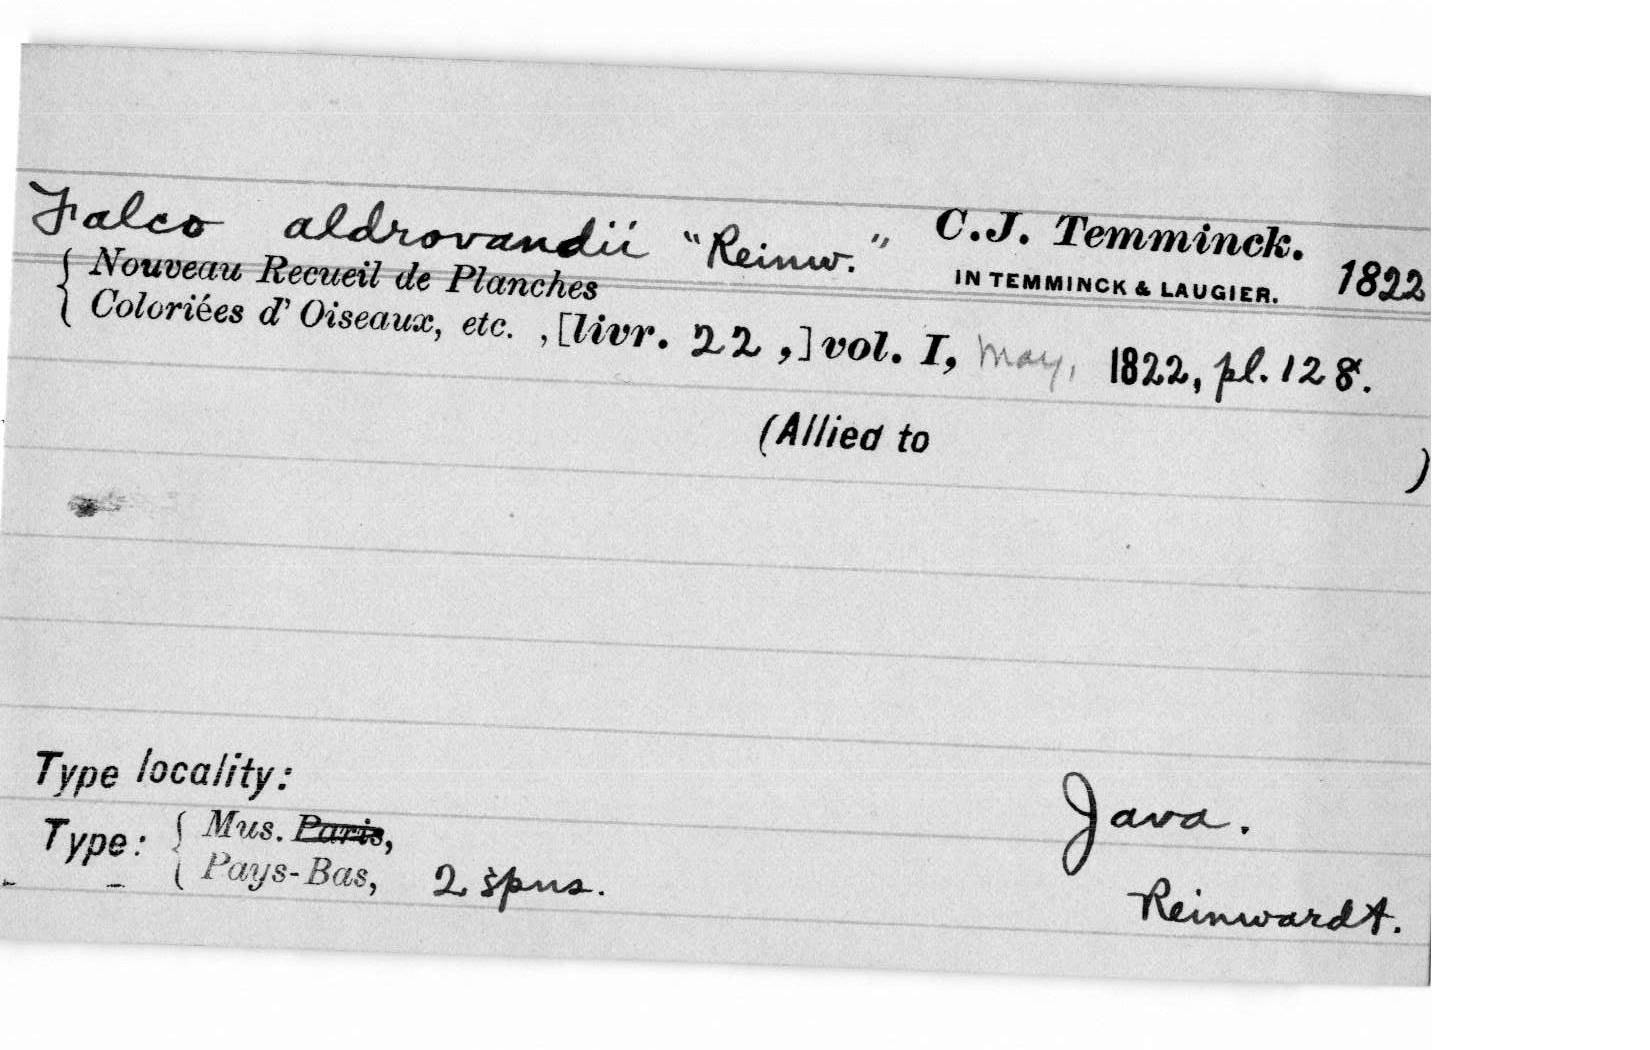 Falco aldrovandii "Reinw." C.J. Temminck.
IN TEMMINCK & LAUGIER. 1822
Nouveau Recueil de Planches
Coloriées d' Oiseaux, etc. , [livr. 22 ,] vol. I, May, 1822, pl. 128.
(Allied to )
Type locality: Java.
Type: Mus. Paris,
Pays-Bas, 2 spns. Reinwardt.